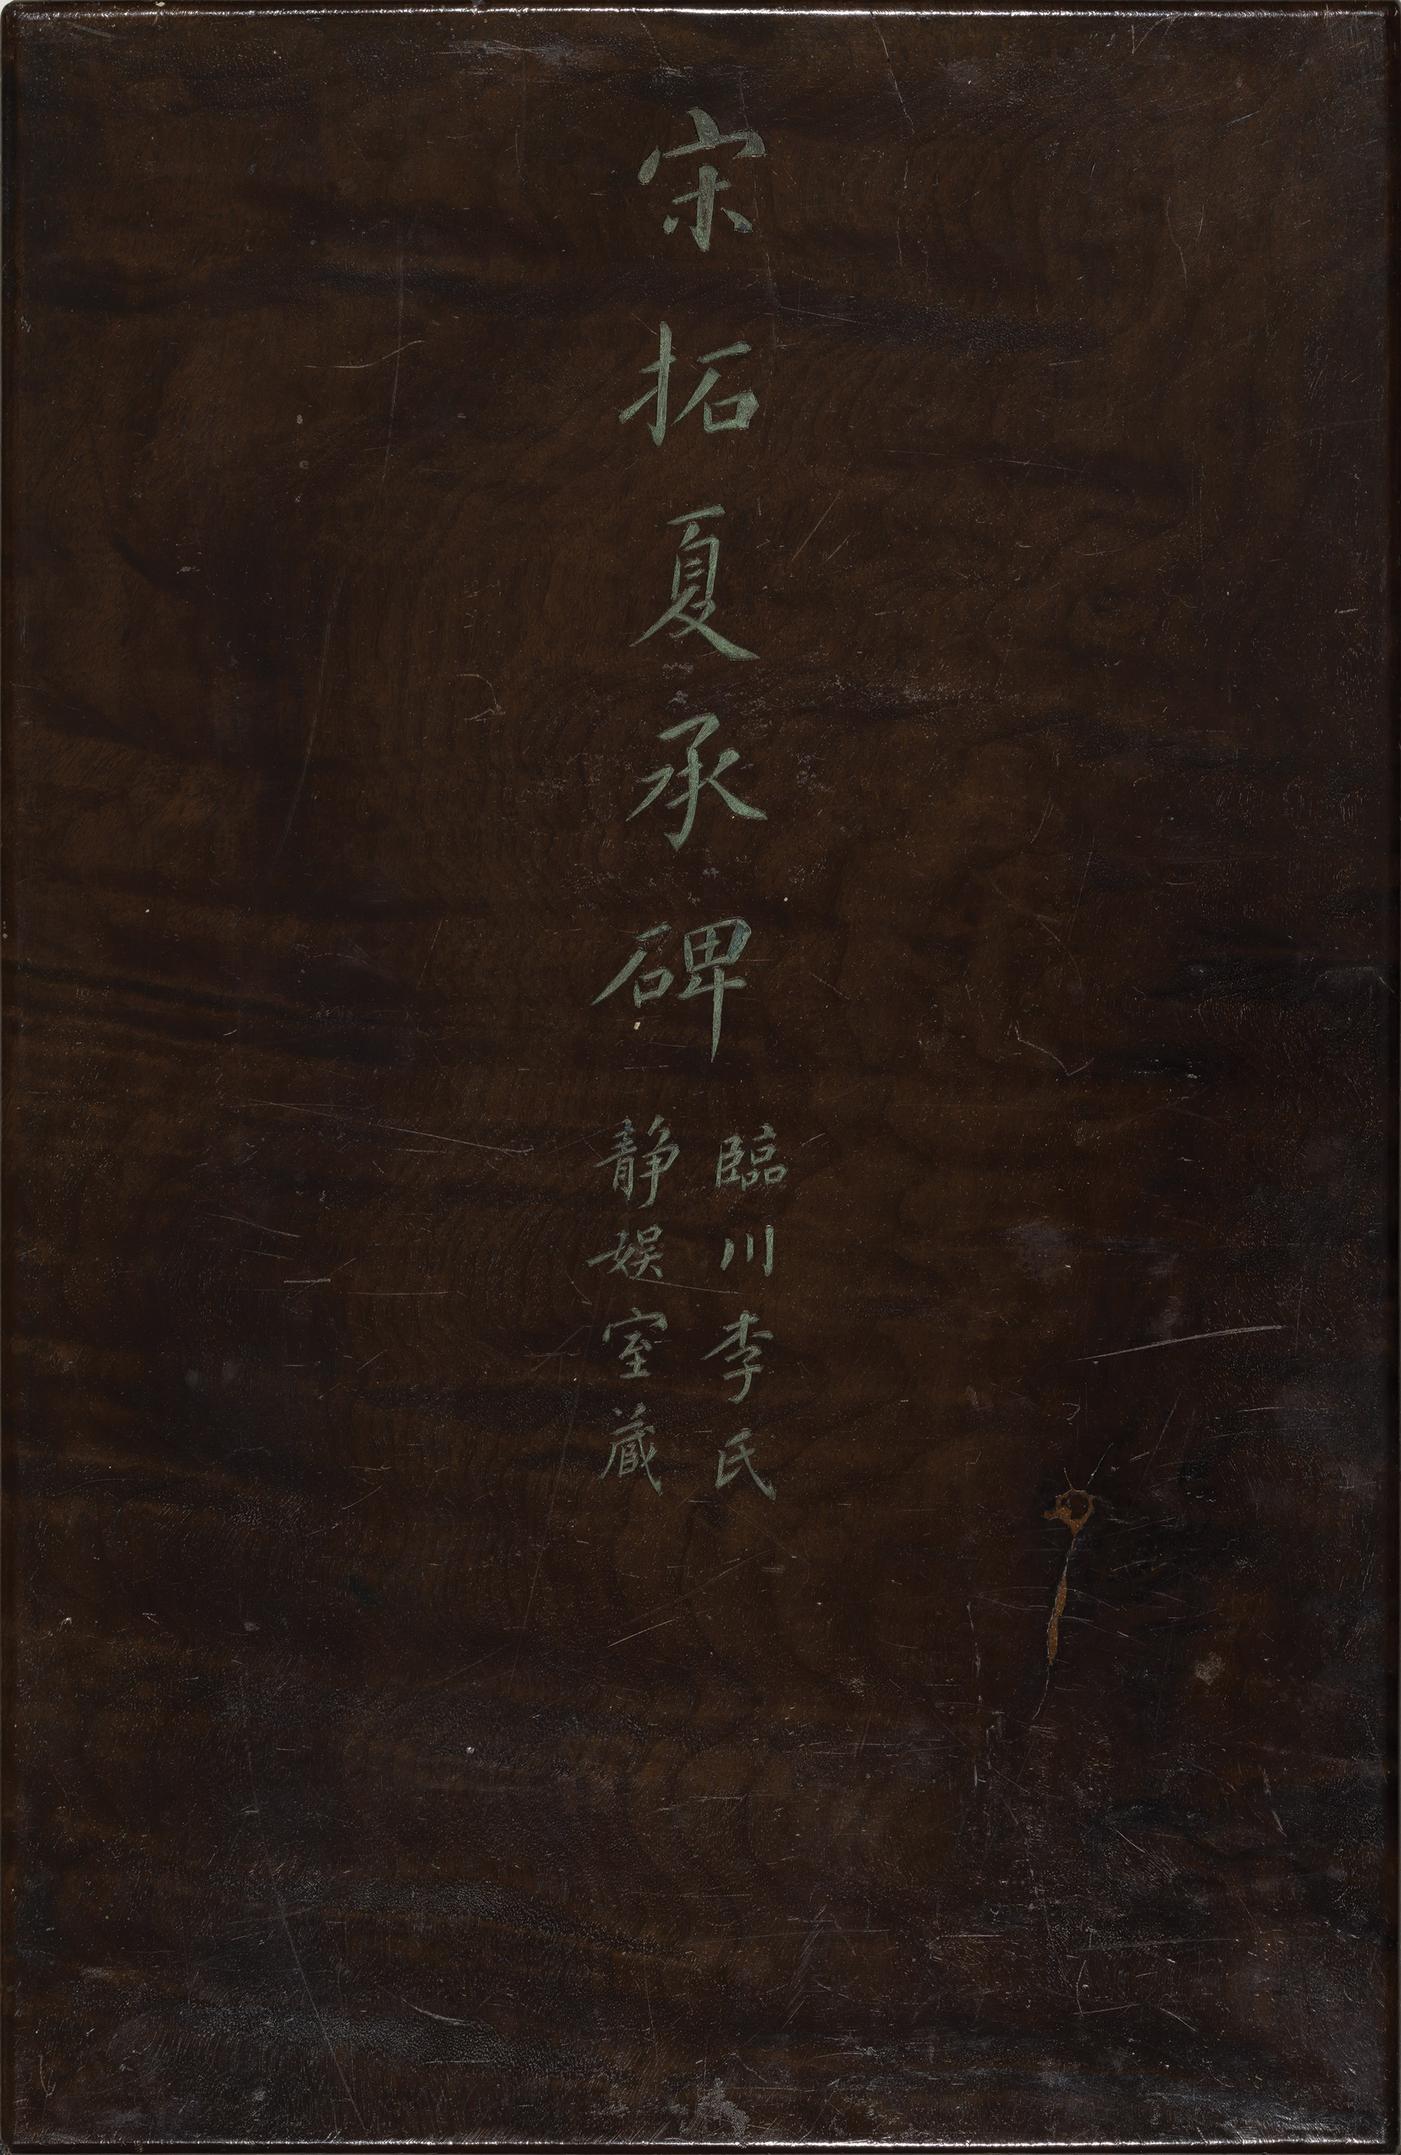 宋拓夏承碑
臨川李氏
静娱室蔵